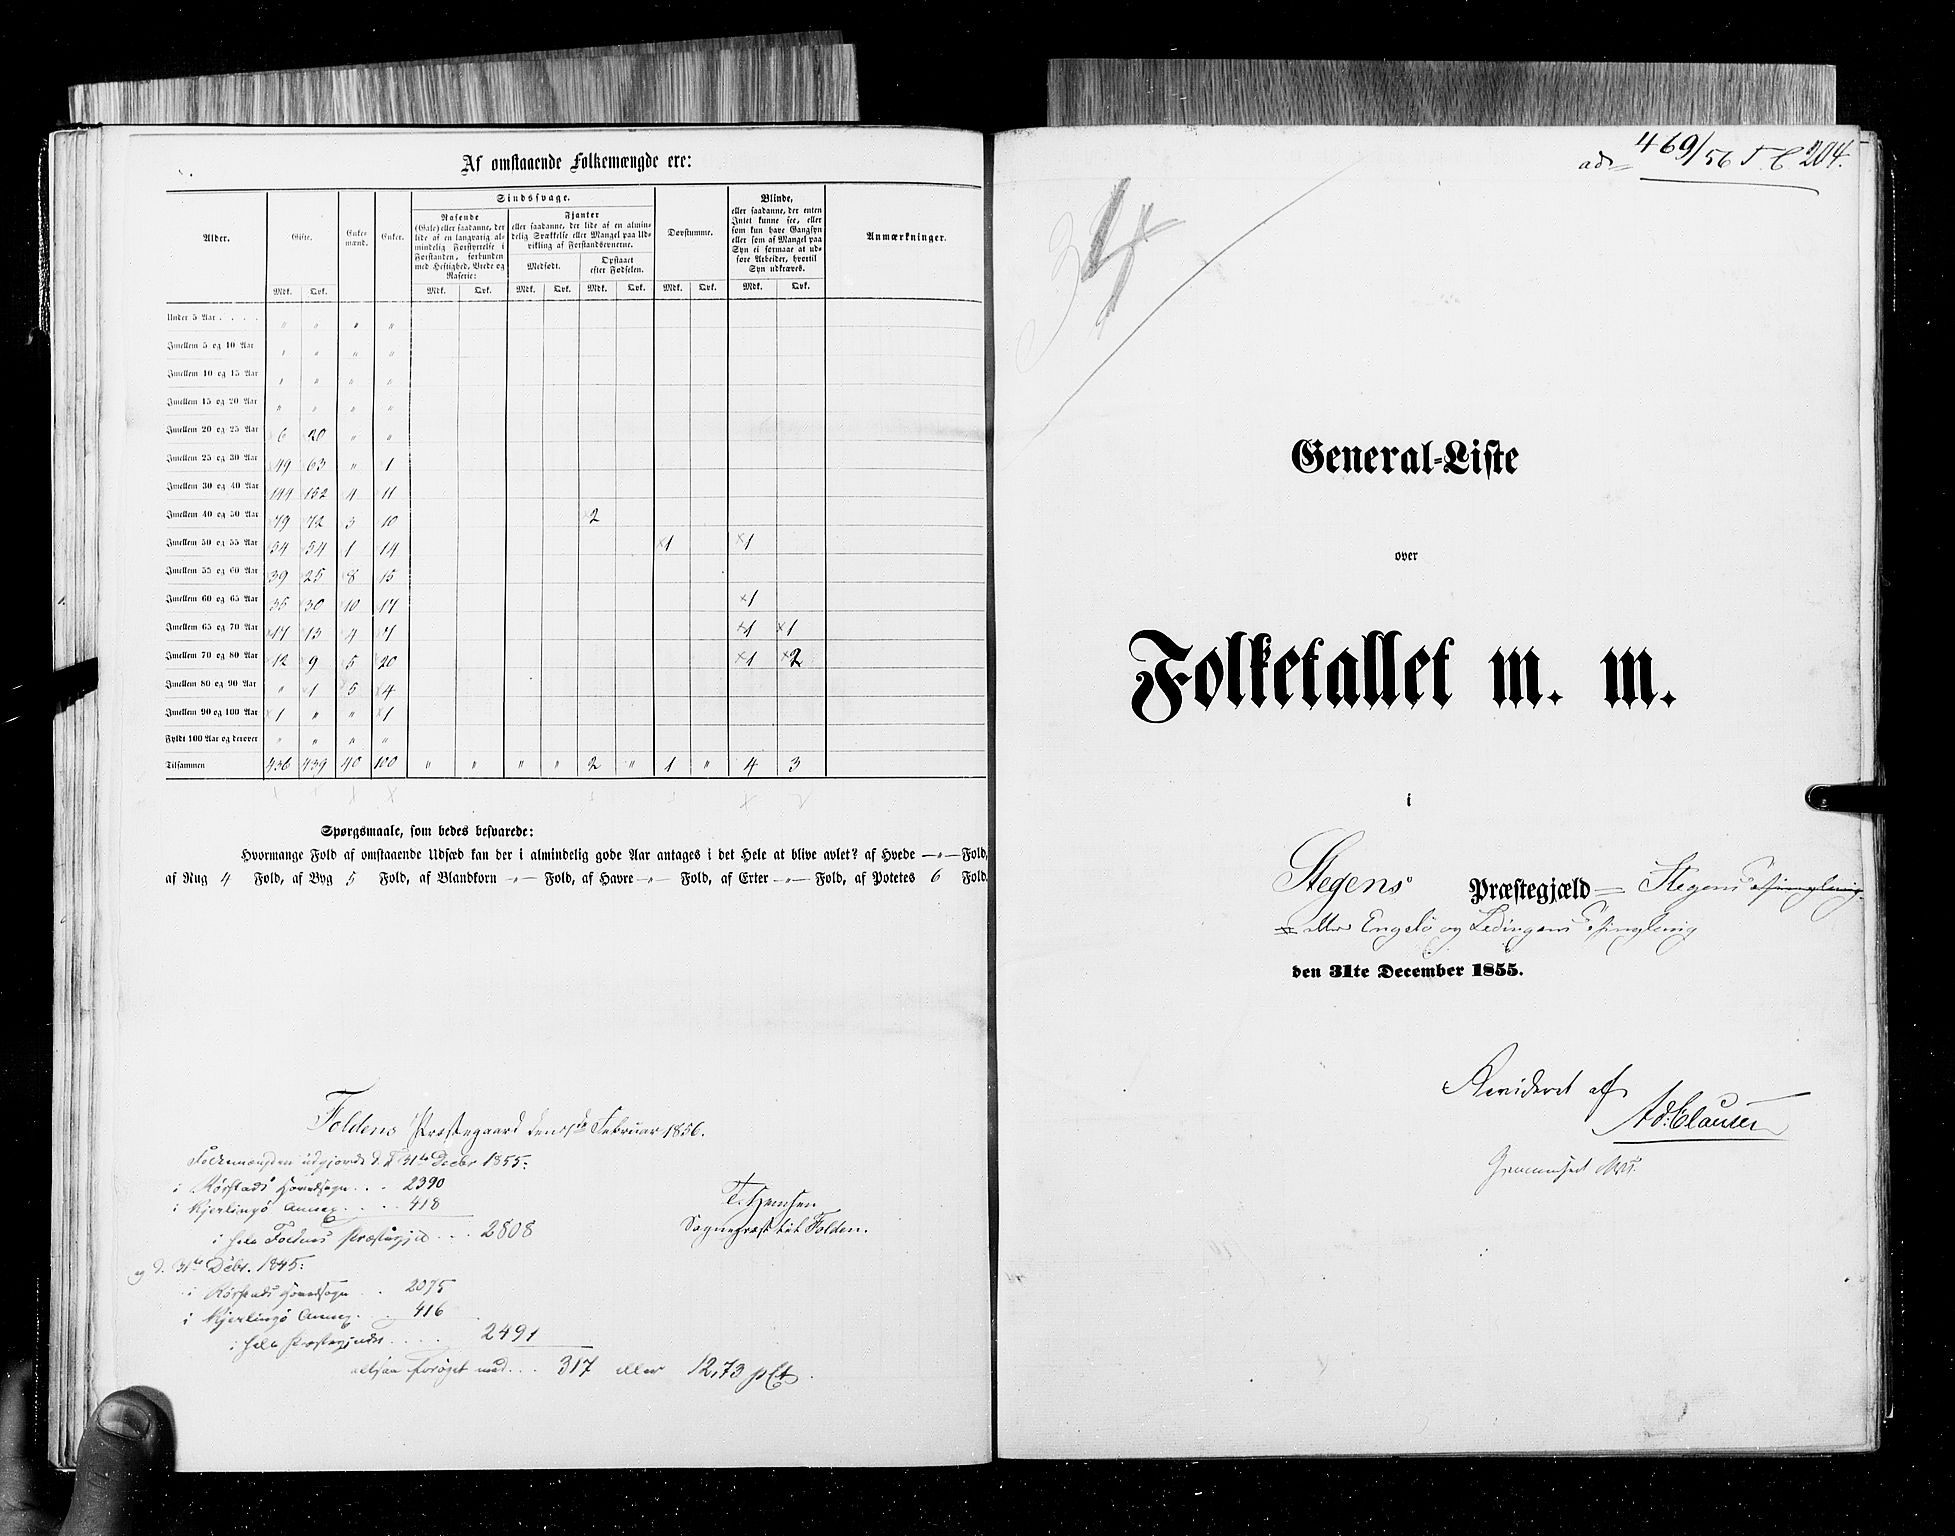 Af omstaaende Folkemængde ere:
Alder. Gifte. Enkemænd. Enker. Sindssvage. Døvstumme. Blinde, Anmærkninger.
Rasende
(Gale) eller saadanne, der
lide af en langvarig almindelig
Forstyrrelse i
Forstanden, forbunden
med Heftighed, Vrede og
Raserie:
Fjanter
eller saadanne, der lide af en almindelig
Svækkelse eller Mangel paa Udvikling
af Forstandsevnerne.
Medfødt. Opstaaet efter Fødselen.
eller saadanne, der enten
Intet kunne see, eller
som kun have Gangsyn
eller som af Mangel paa
Syn ei formaae at udføre
Arbeider, hvortil
Syn udkræves.
Mdk. Qvk. Mdk. Qvk. Mdk. Qvk. Mdk. Qvk. Mdk. Qvk. Mdk. Qvk.
Under 5 Aar . . . . " " " "
Imellem 5 og 10 Aar " " " "
Imellem 10 og 15 Aar " " " "
Imellem 15 og 20 Aar " " " "
Imellem 20 og 25 Aar 6 20 " "
Imellem 25 og 30 Aar 49 63 " 1
Imellem 30 og 40 Aar 144 152 4 11
Imellem 40 og 50 Aar 79 72 3 10 2
Imellem 50 og 55 Aar 54 54 1 14 1 1
Imellem 55 og 60 Aar 39 25 8 15
Imellem 60 og 65 Aar 35 30 10 17 1
Imellem 65 og 70 Aar 17 13 4 7 1 1
Imellem 70 og 80 Aar 12 9 5 20 1 2
Imellem 80 og 90 Aar " 1 5 4
Imellem 90 og 100 Aar 1 " " 1
Fyldt 100 Aar og derover " " " "
Tilsammen 436 439 40 100 " " " " 2 " 1 " 4 3
Spørgsmaale, som bedes besvarede:
Hvormange Fold af omstaaende Udsæd kan der i almindelig gode Aar antages i det Hele at blive avlet? af Hvede —"— Fold,
af Rug 4 Fold, af Byg 5 Fold, af Blandkorn —"— Fold, af Havre —"— Fold, af Erter —"— Fold, af Potetes 6 Fold.
Foldens Præstegaard den Februar 1856.
Folkemængden udgjorde d. 31te Decbr 1855:
i Rørstads Hovedsogn . . . 2390
i Kjerringø Annex . . . . 418
i hele Foldens Præstegjeld . . . 2808
og d. 31te Decbr. 1845:
i Rørstads Hovedsogn . . 2075
i Kjerringø Annex. . . 416
i hele Præstegjeldet . . . . 2491
altsaa forøget med . . . 317 eller 12,73 pCt.
Sognepræst til Folden.
ad 469/56 204.
34
General-Liste
over
Folketallet m. m.
i
Stegens Præstegjæld Stegens
eller Engelø og Ledingens Thinglaug
den 31te December 1855.
Revideret af
Ad. Clausen